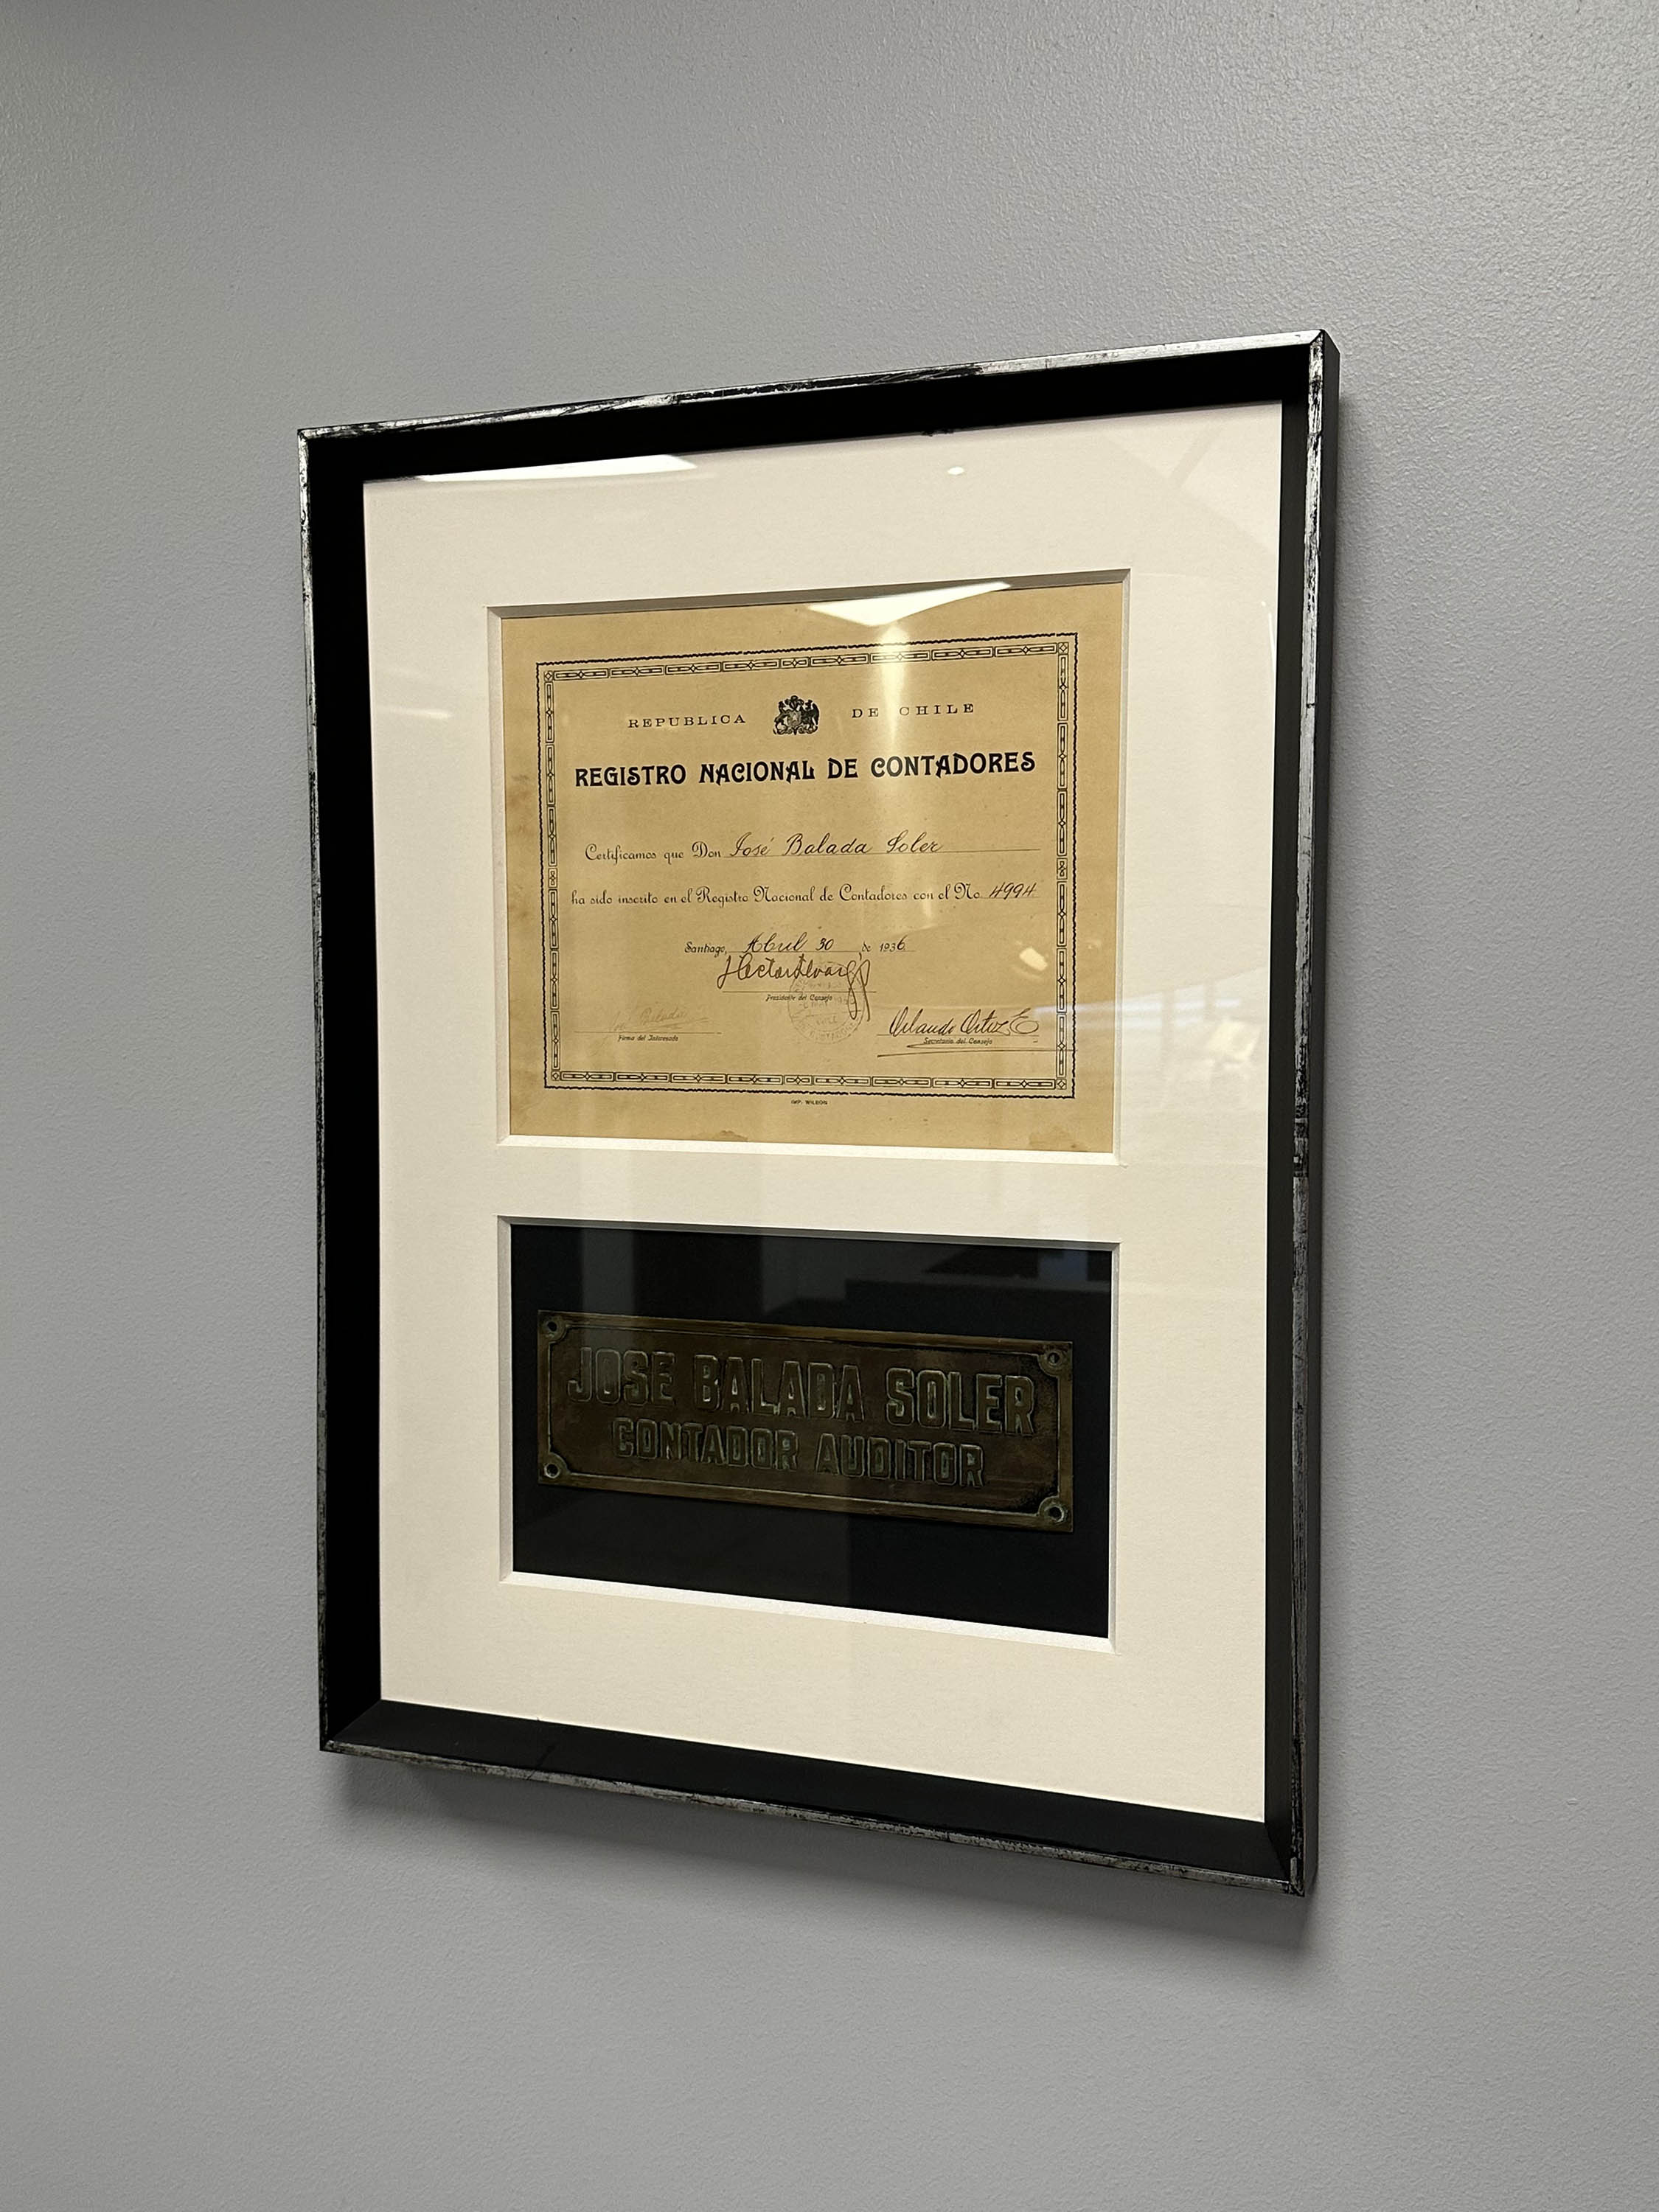 REPUBLICA DE CHILE
REGISTRO NACIONAL DE CONTADORES
Certificamos que Don José Balada Soler
ha sido inscrito en el Registro Nacional de Contadores con el No. 4994
Santiago, Abril 30 de 1936
Presidente del Consejo
Firma del Interesado
Orlando Ortuz E
Secretario del Consejo
IMP. WILSON
JOSE BALADA SOLER
CONTADOR AUDITOR